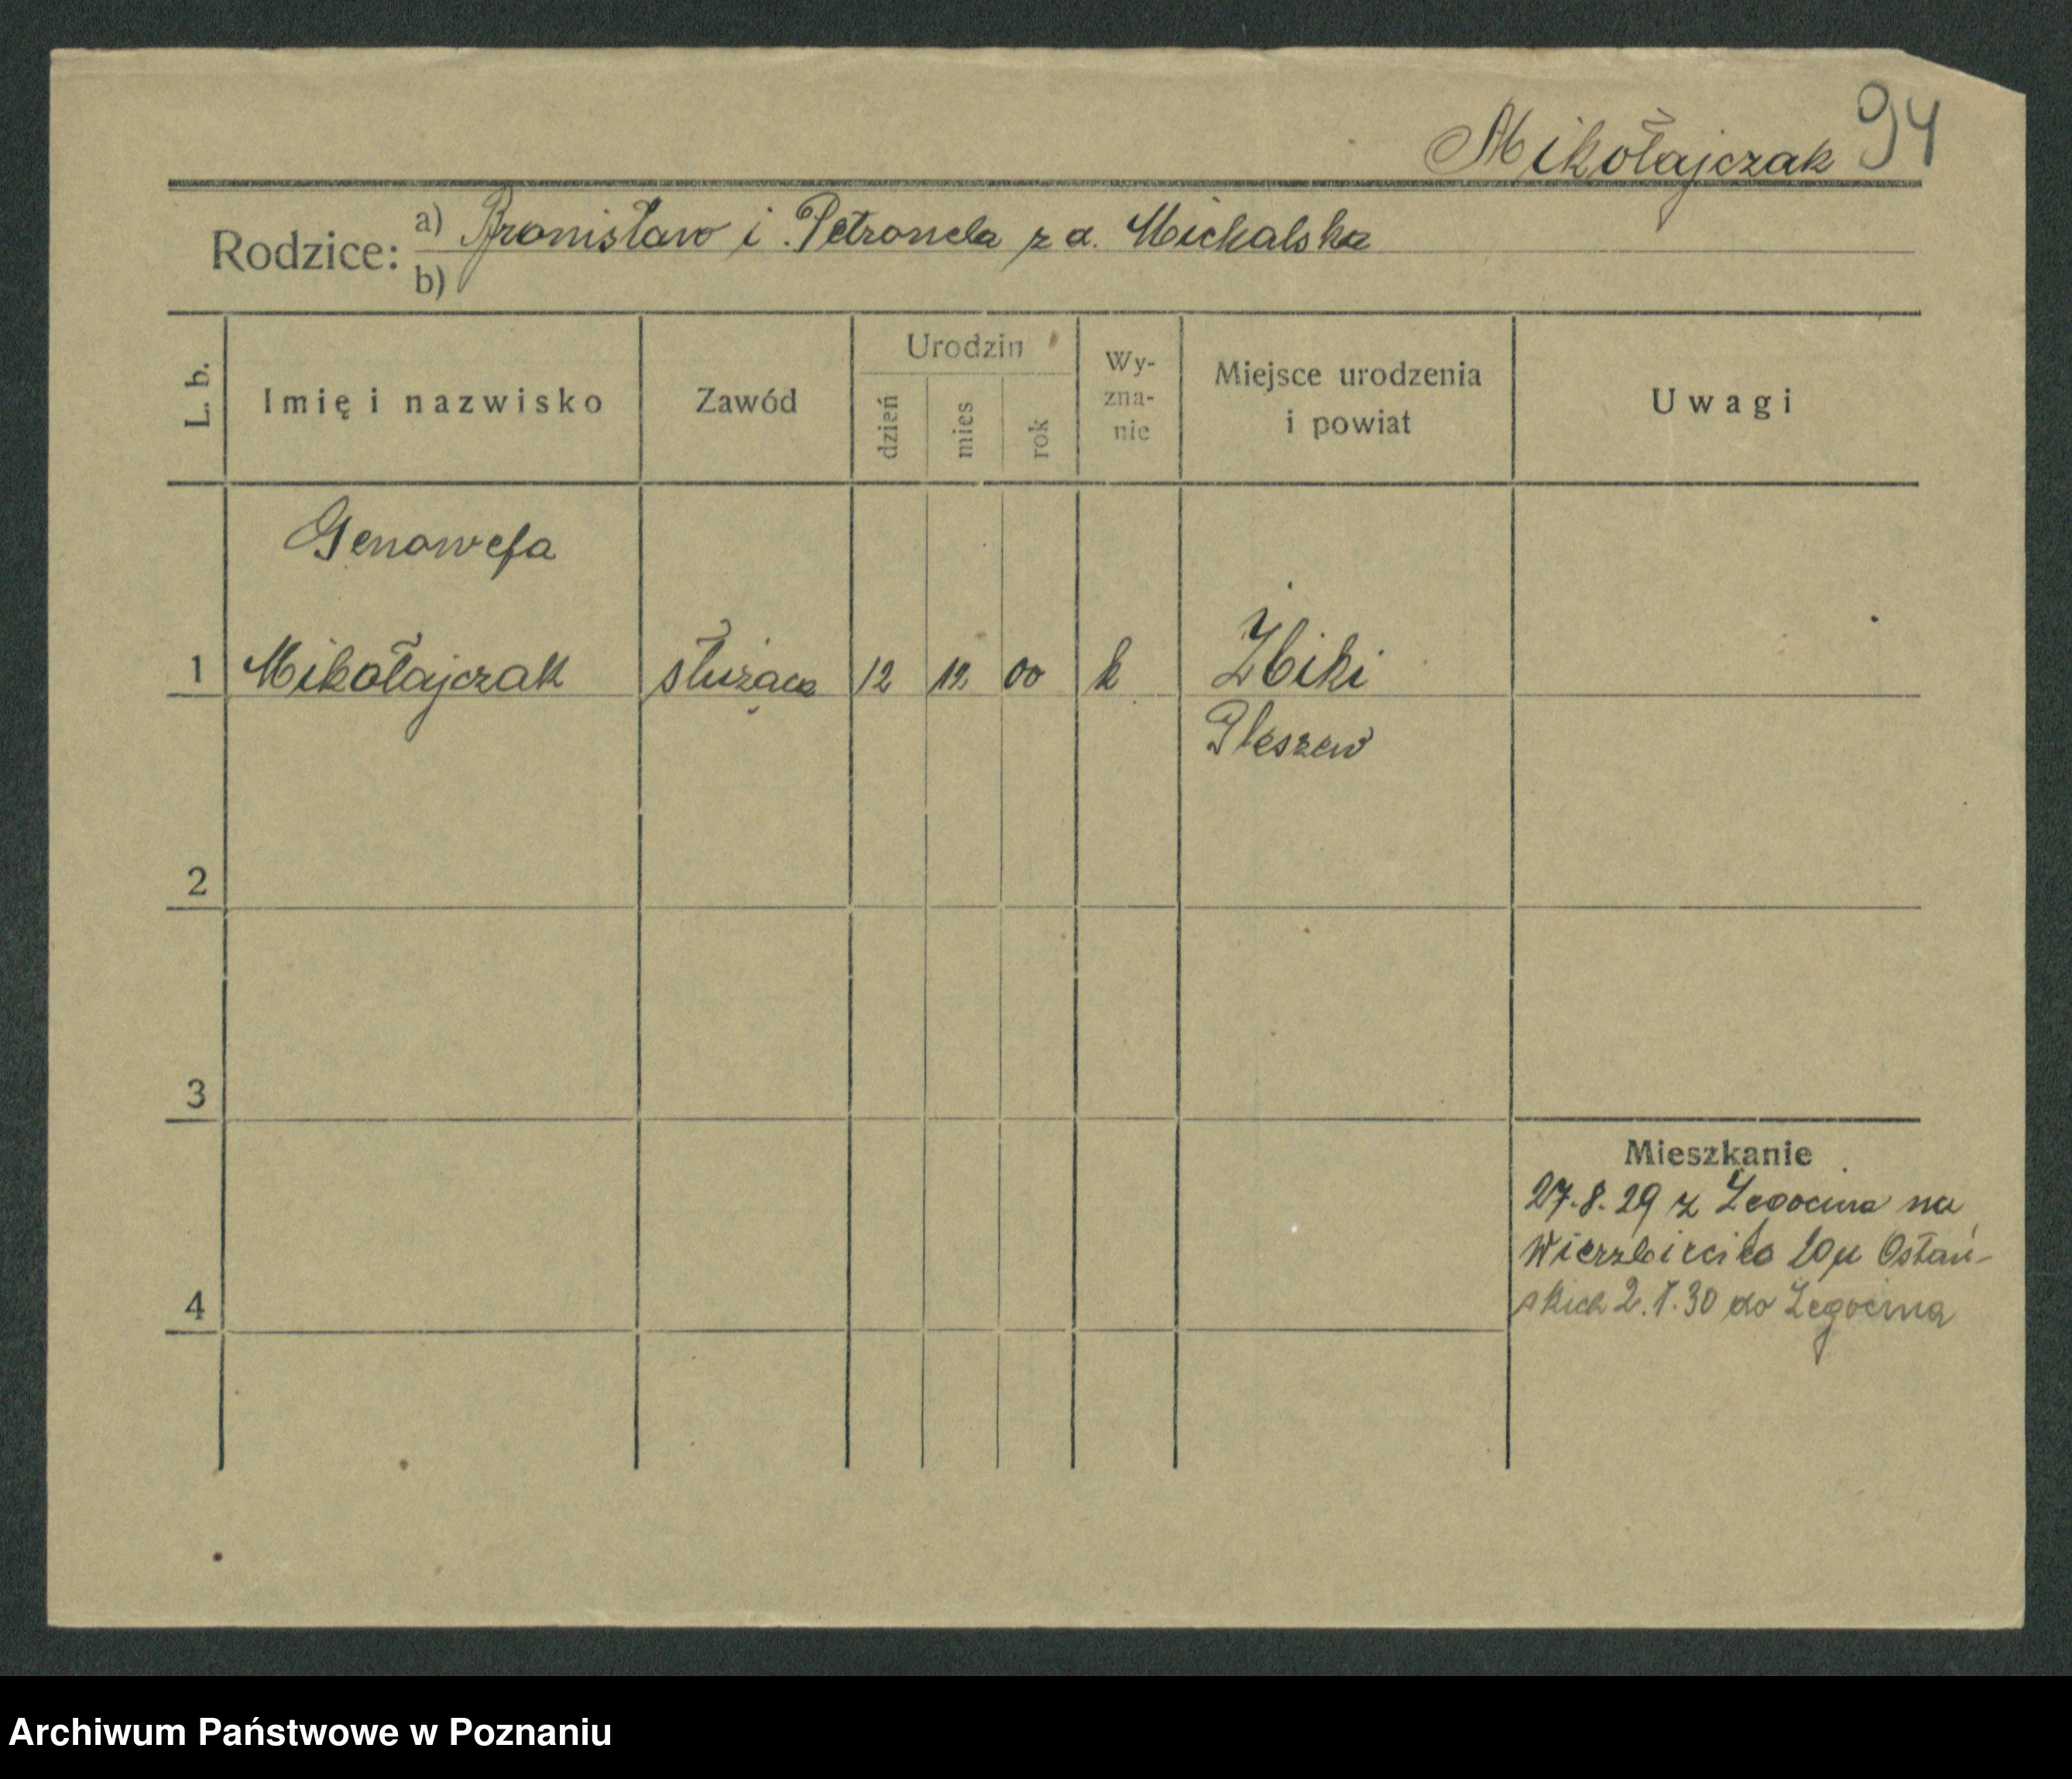 Mikołajczak 94
Rodzice: a) Bronisław i Petronela z d. Michalska
b)
L. b. Imię i nazwisko Zawód Urodzin dzień mies rok Wy-zna-nie Miejsce urodzenia i powiat Uwagi
Genowefa
1 Mikołajczak służąca 12 12 00 k Żbiki
Pleszew
2
3
Mieszkanie
27.8.29 z Żegocina na
Wierzbięcice 20 u Ostań-
4 skich 2.1.30 do Żegocina
Archiwum Państwowe w Poznaniu